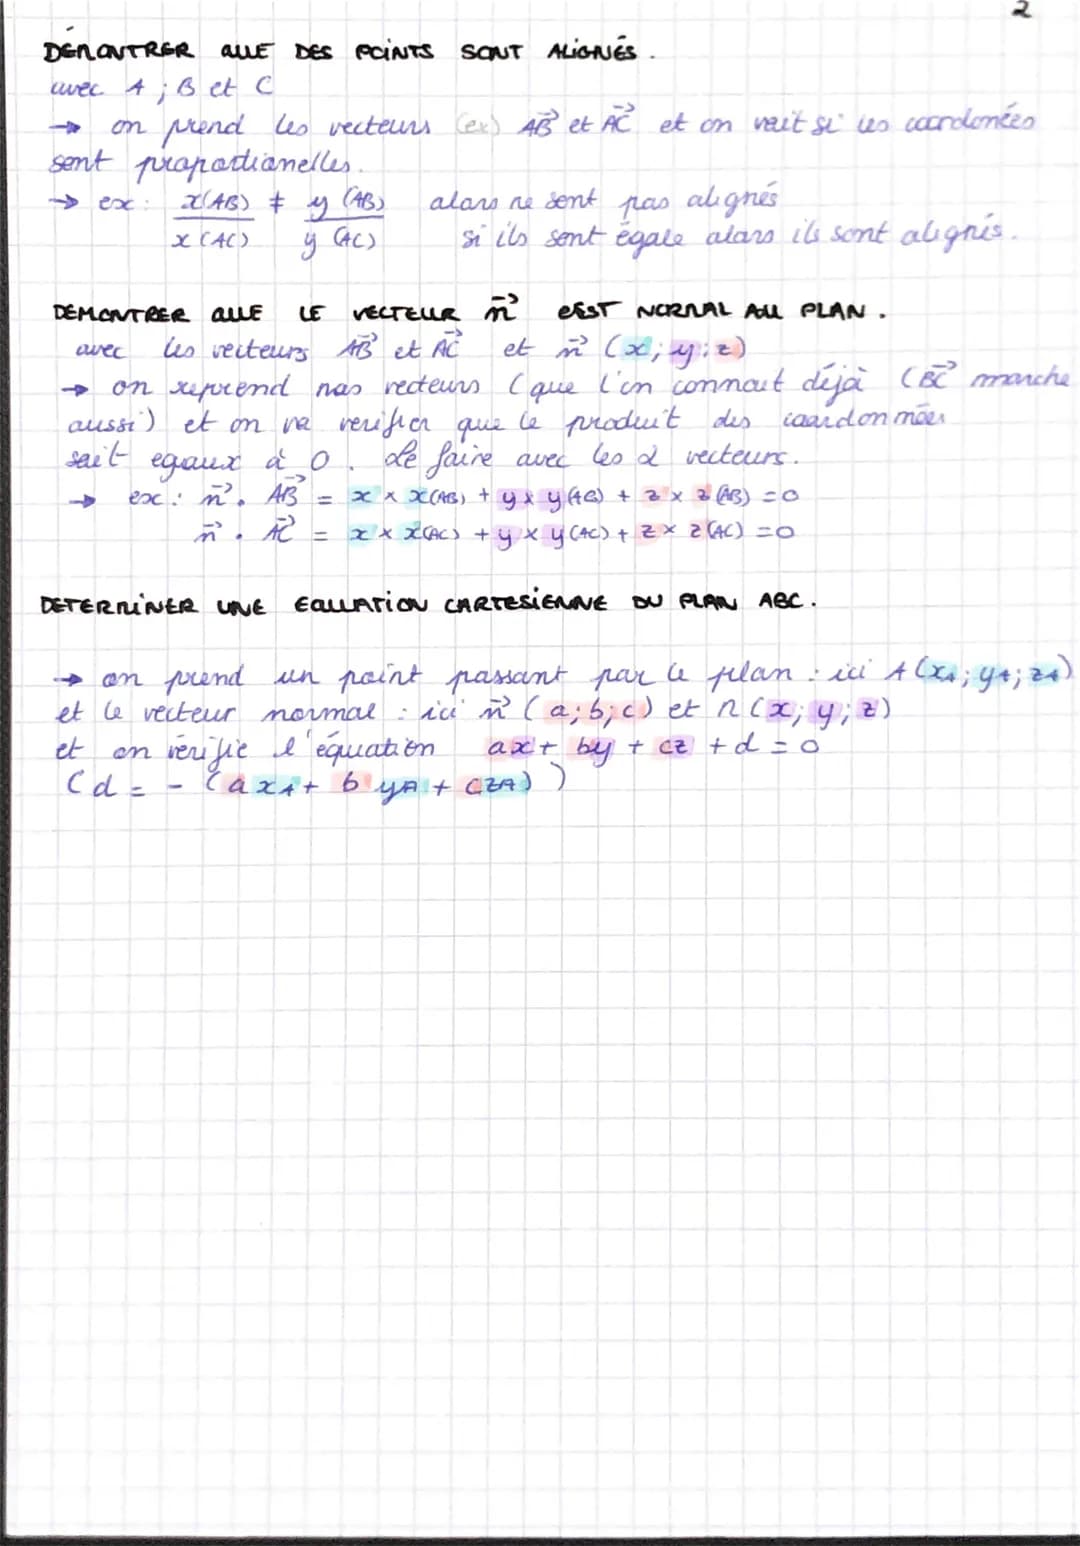 2
DÉMONTRER QUE DES POINTS SONT ALIGNÉS.
avec A ; B et C
→ on prend les vecteurs (ex) AB⃗ et AC⃗ et on voit si les coordonées
sont proportionelles.
→ ex : x(AB)/x(AC) ≠ y(AB)/y(AC) alors ne sont pas alignés
si ils sont égale alors ils sont alignés.
DEMONTRER QUE LE VECTEUR n⃗ esST NORMAL AU PLAN.
avec les vecteurs AB⃗ et AC⃗ et n⃗ (x; y; z)
→ on reprend nos vecteurs (que l'on connait déjà (BC⃗ marche
aussi) et on va verifier que le produit des coordonnées
soit egaux à 0. Le faire avec les 2 vecteurs.
→ ex : n⃗ . AB⃗ = x × x(AB) + y × y(AB) + z × z(AB) = 0
n⃗ . AC⃗ = x × x(AC) + y × y(AC) + z × z(AC) = 0
DETERMINER UNE EQUATION CARTESIENNE DU PLAN ABC.
→ on prend un point passant par le plan : ici A(xA; yA; zA)
et le vecteur normal : ici n⃗ (a; b; c) et M(x; y; z)
et on vérifie l'équation ax + by + cz + d = 0
(d = - (axA + b yA + czA))